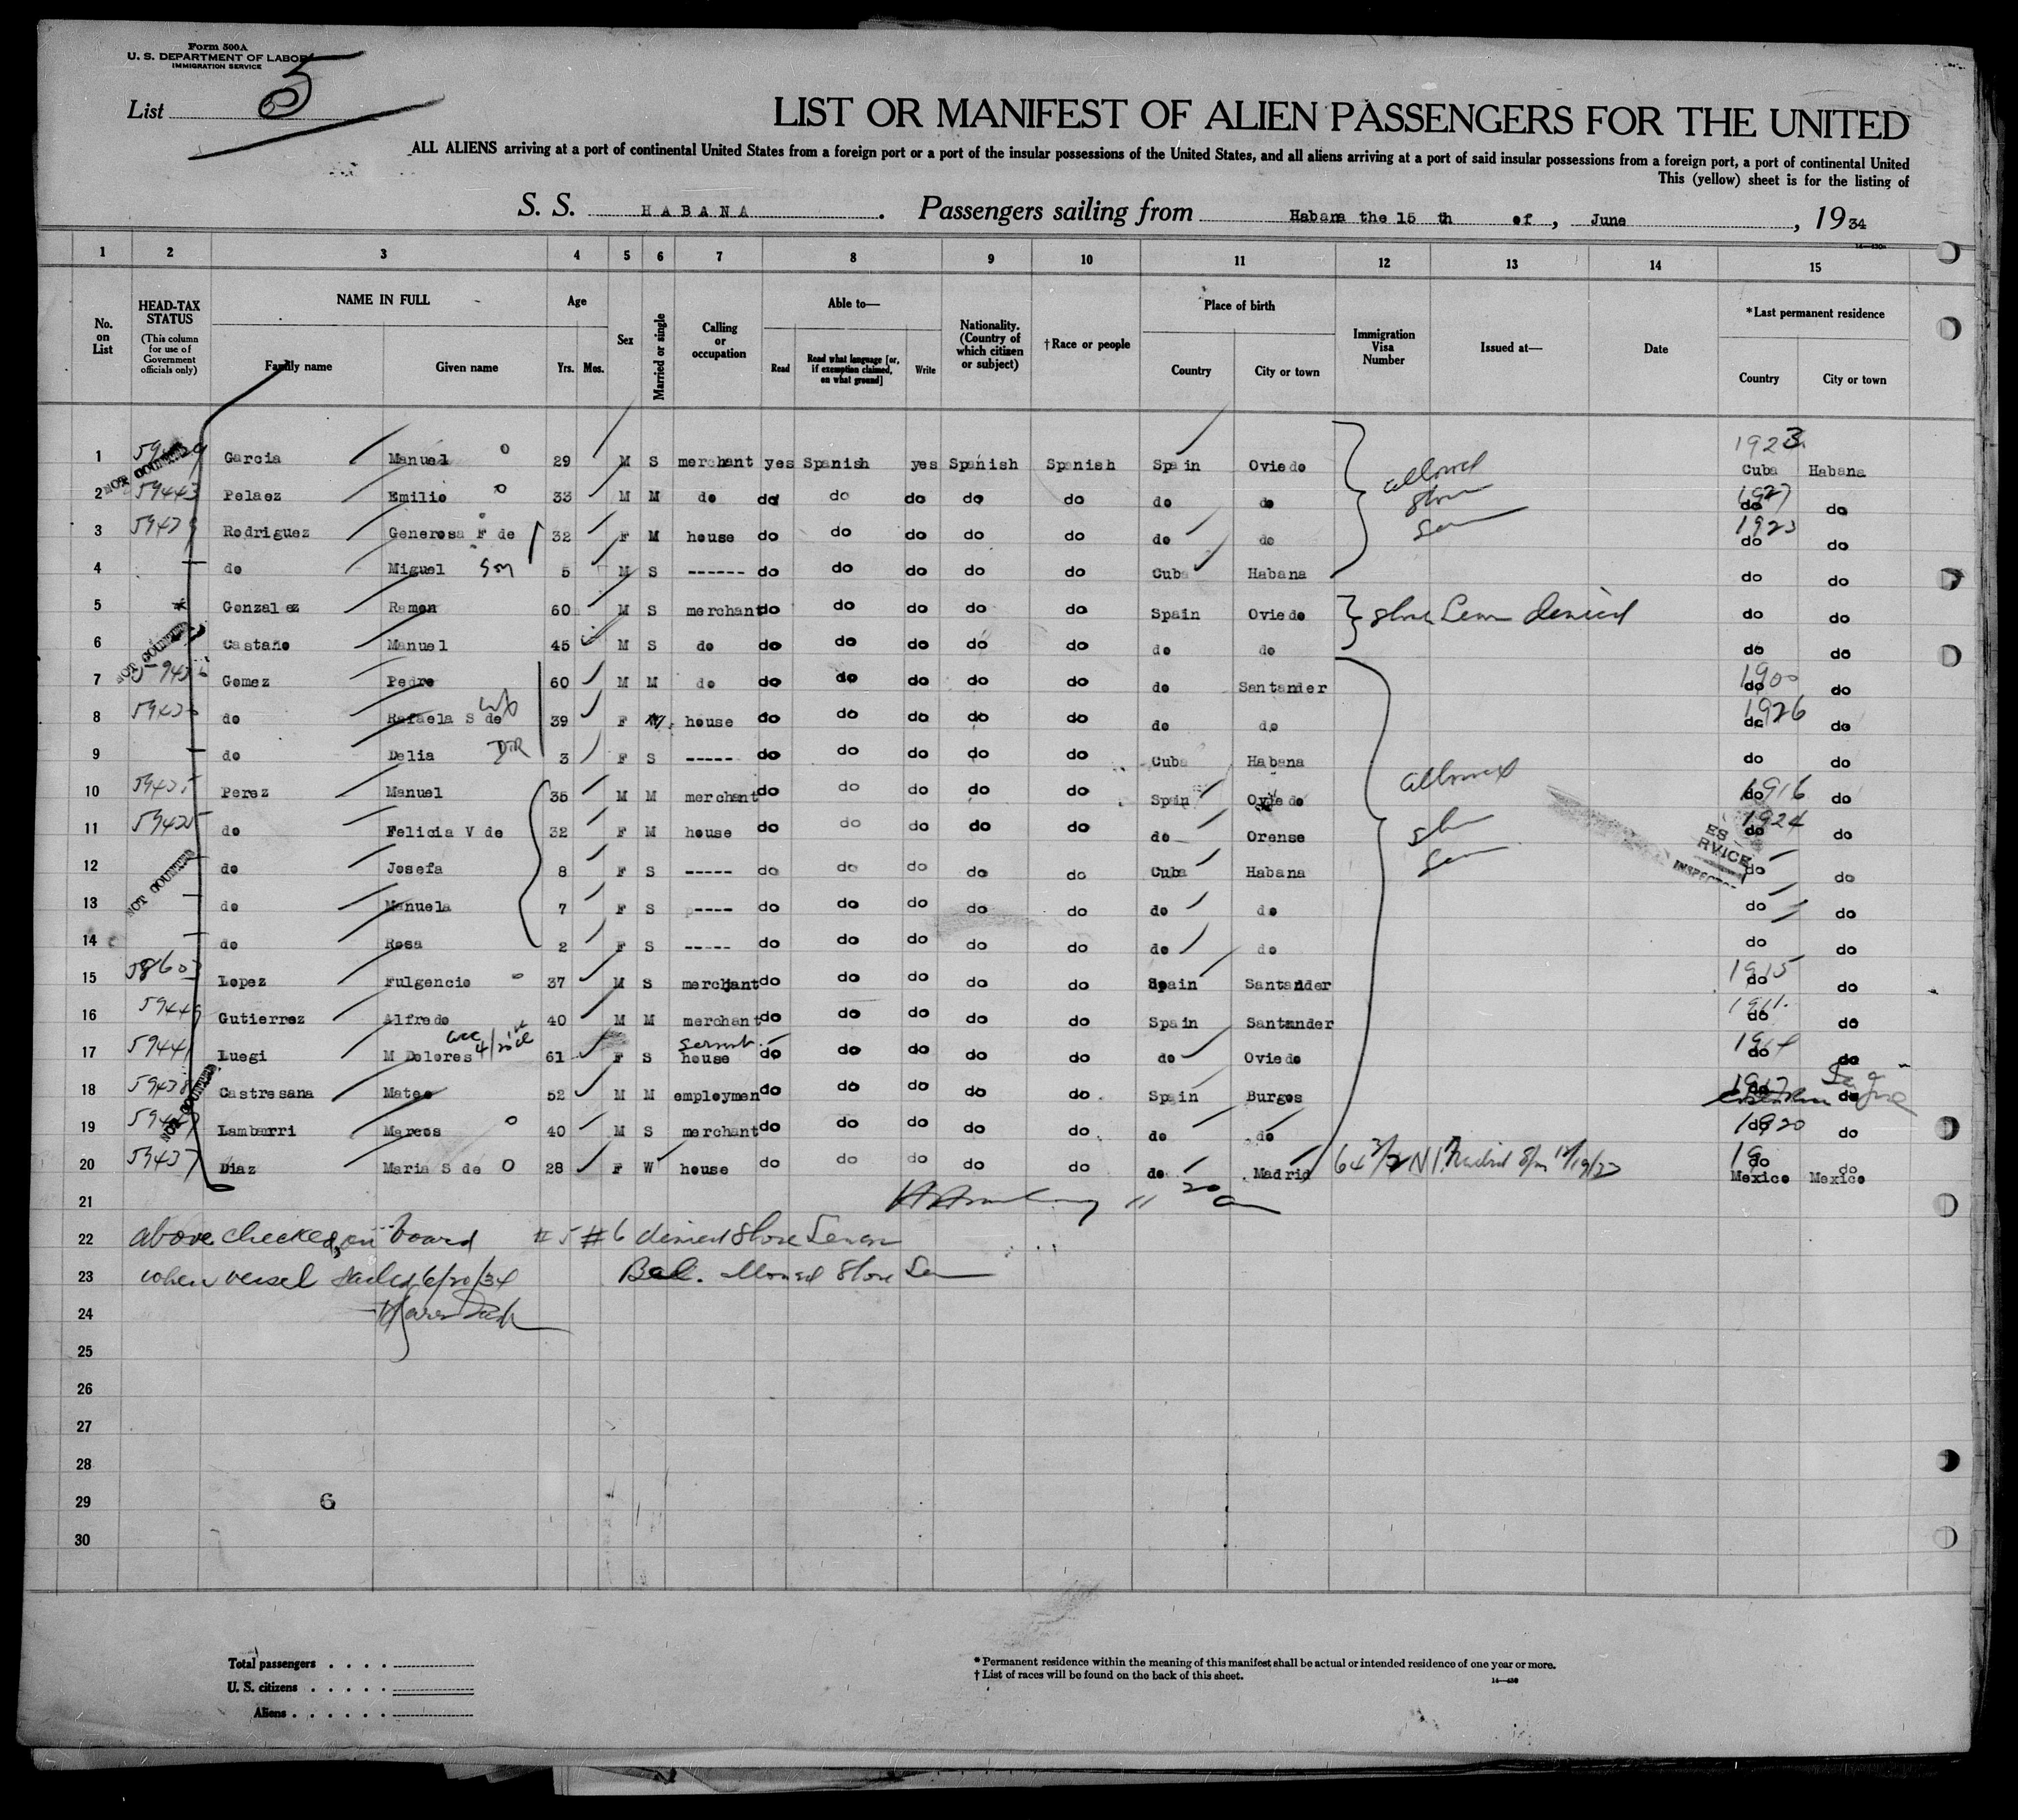 Form 500A
U. S. DEPARTMENT OF LABOR
IMMIGRATION SERVICE
List 5
LIST OR MANIFEST OF ALIEN PASSENGERS FOR THE UNITED
ALL ALIENS arriving at a port of continental United States from a foreign port or a port of the insular possessions of the United States, and all aliens arriving at a port of said insular possessions from a foreign port, a port of continental United
This (yellow) sheet is for the listing of
S. S. HABANA. Passengers sailing from Habana the 15 th of, June, 1934
1 2 3 4 5 6 7 8 9 10 11 12 13 14 15
No. on List
HEAD-TAX STATUS (This column for use of Government officials only)
NAME IN FULL Family name Given name
Age Yrs. Mos.
Sex
Married or single
Calling or occupation
Able to— Read Read what language [or, if exemption claimed, on what ground] Write
Nationality. (Country of which citizen or subject)
† Race or people
Place of birth Country City or town
Immigration Visa Number
Issued at—
Date
* Last permanent residence Country City or town
1 Garcia Manuel 29 M S merchant yes Spanish yes Spanish Spanish Spain Oviedo 1923 Cuba Habana
2 59443 Pelaez Emilio 33 M M do do do do do do do do 1927 do do
3 Rodriguez Generosa F de 32 F M house do do do do do do do 1923 do do
4 do Miguel Son 5 M S ------ do do do do do Cuba Habana do do
5 Gonzalez Ramon 60 M S merchant do do do do do Spain Oviedo denied do do
6 Castaño Manuel 45 M S do do do do do do do do do do
7 Gomez Pedro 60 M M do do do do do do do Santander 1900 do do
8 do Rafaela S de 39 F M house do do do do do do do 1926 do do
9 do Delia 3 F S ----- do do do do do Cuba Habana do do
10 Perez Manuel 35 M M merchant do do do do do Spain Oviedo 1916 do do
11 59425 do Felicia V de 32 F M house do do do do do do Orense 1924 do do
12 do Josefa 8 F S ----- do do do do do Cuba Habana do do
13 do Manuela 7 F S ---- do do do do do do do do do
14 do Rosa 2 F S ----- do do do do do do do do do
15 58603 Lopez Fulgencio 37 M S merchant do do do do do Spain Santander 1915 do do
16 59449 Gutierrez Alfredo 40 M M merchant do do do do do Spain Santander 1911 do do
17 59441 Luegi M Dolores 61 F S servant house do do do do do do Oviedo do do
18 59438 Castresana Mateo 52 M M employmen do do do do do Spain Burgos 1917 do do
19 Lambarri Marcos 40 M S merchant do do do do do do do 1920 do do
20 59437 Diaz Maria S de 28 F W house do do do do do do Madrid do do Mexico Mexico
NOT COUNTED
NOT COUNTED
NOT COUNTED
NOT COUNTED
allowed
shore
allowed
21
22 above checked, on board #5 #6 denied Shore
23 when vessel sailed 6/20/34 Bal. allowed Shore
24
25
26
27
28
29 6
30
Total passengers . . . .
U. S. citizens . . . . .
Aliens . . . . . .
* Permanent residence within the meaning of this manifest shall be actual or intended residence of one year or more.
† List of races will be found on the back of this sheet.